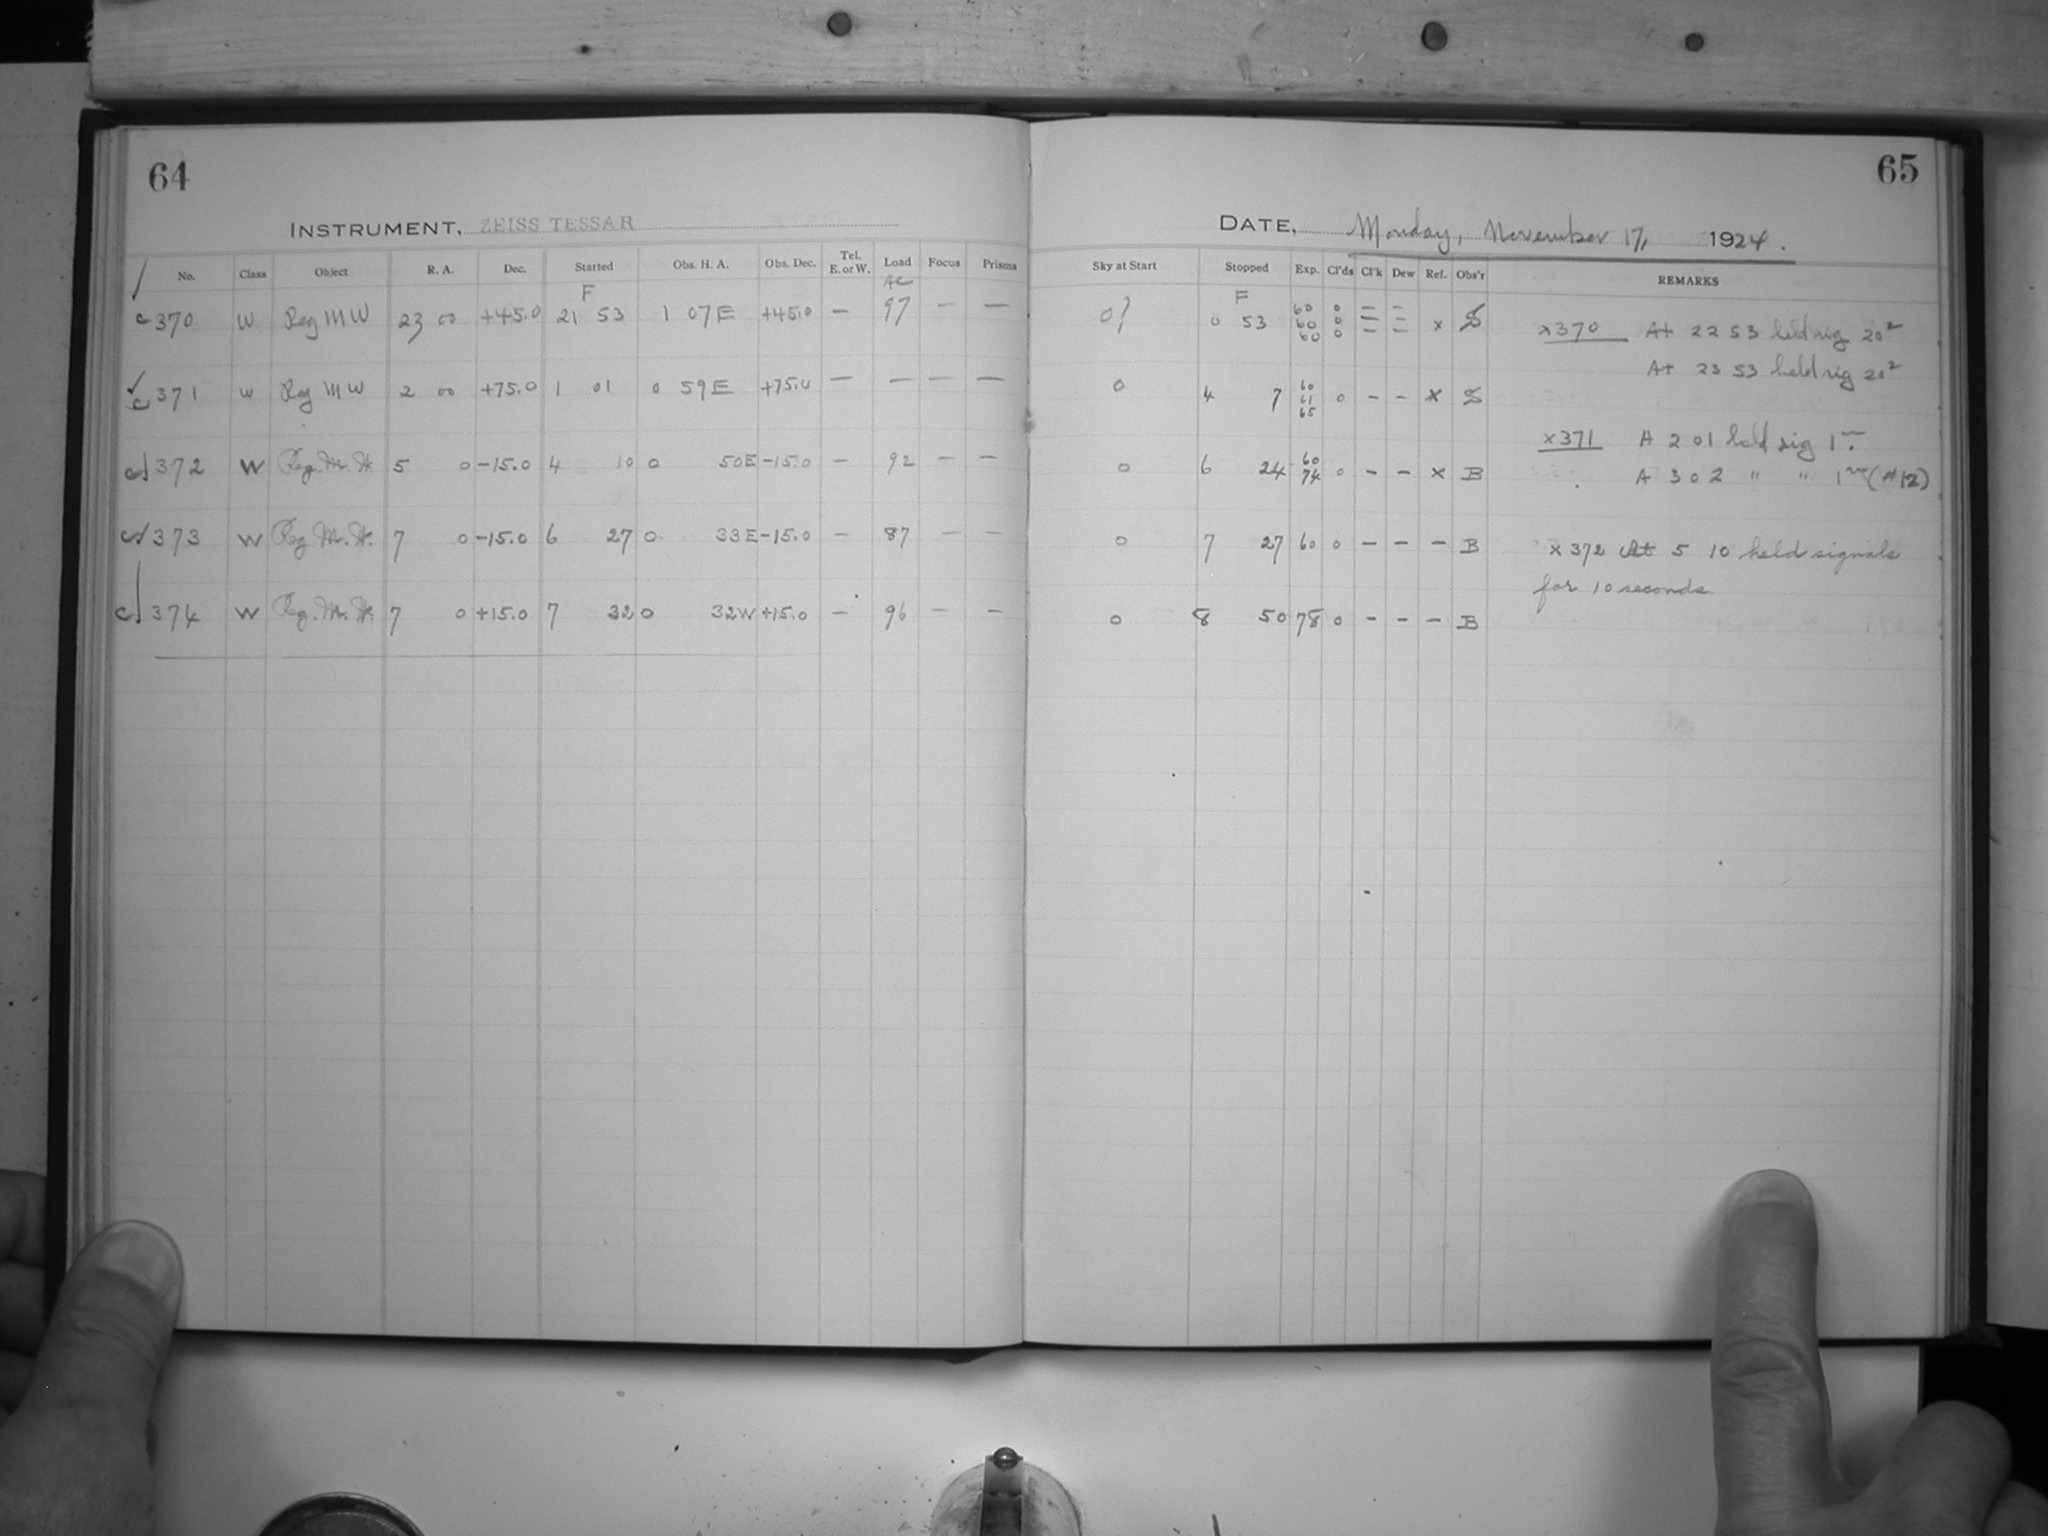 64
INSTRUMENT, ZEISS TESSAR
No. Class Object R. A. Dec. Started Obs. H. A. Obs. Dec. Tel. E. or W. Load Focus Prisms
F AC
370 W Reg M W 23 00 +45.0 21 53 1 07 E +45.0 — 97 — —
371 W Reg M W 2 00 +75.0 1 01 0 59 E +75.0 — — — —
372 W Reg. M. W. 5 0 -15.0 4 10 0 50E -15.0 — 92 — —
373 W Reg. M. W. 7 0 -15.0 6 27 0 33E -15.0 — 87 — —
374 W Reg. M. W. 7 0 +15.0 7 32 0 32W +15.0 — 96 — —
65
DATE, Monday, November 17, 1924.
Sky at Start Stopped Exp. Cl'ds Cl'k Dew Ref. Obs'r REMARKS
F
0? 0 53 60 60 60 0 0 0 — — — — — — x S
x370 At 22 53 held sig 20s
At 23 53 held sig 20s
0 4 7 60 61 65 0 - - x S
x371 A 2 01 held sig 1m.
A 3 02 " " 1m (#12)
0 6 24 60 74 0 - - x B
0 7 27 60 0 — — — B
x 372 At 5 10 held signals
for 10 seconds.
0 8 50 78 0 - - — B